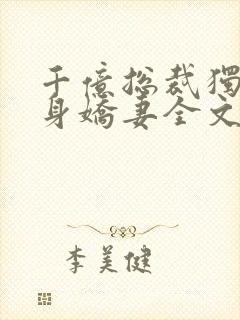 千億總裁獨
身嬌妻全文
李美健